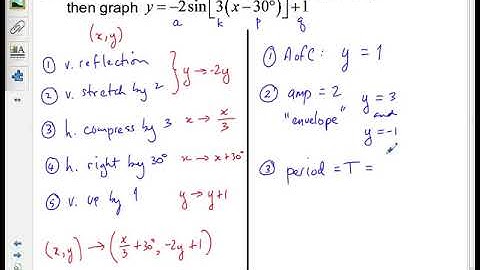 then graph y = −2sin[3(x−30°)]+1
a k p q
(x,y)
① v. reflection
② v. stretch by 2
} y → -2y
③ h. compress by 3 x → x/3
④ h. right by 30° x → x+30°
⑤ v. up by 1 y → y+1
(x,y) → (x/3 + 30°, -2y + 1)
① AofC: y = 1
② amp = 2 y = 3
"envelope" and
y = -1
③ period = T =